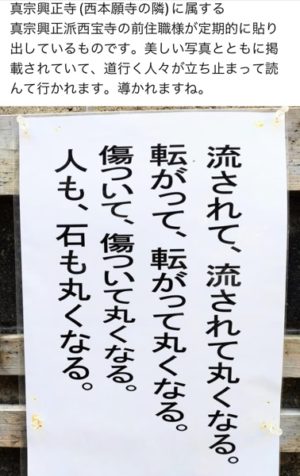 真宗興正寺(西本願寺の隣)に属する
真宗興正派西宝寺の前住職様が定期的に貼り
出しているものです。美しい写真とともに掲
載されていて、道行く人々が立ち止まって読
んで行かれます。導かれますね。
流されて、流されて丸くなる。
転がって、転がって丸くなる。
傷ついて、傷ついて丸くなる。
人も、石も丸くなる。